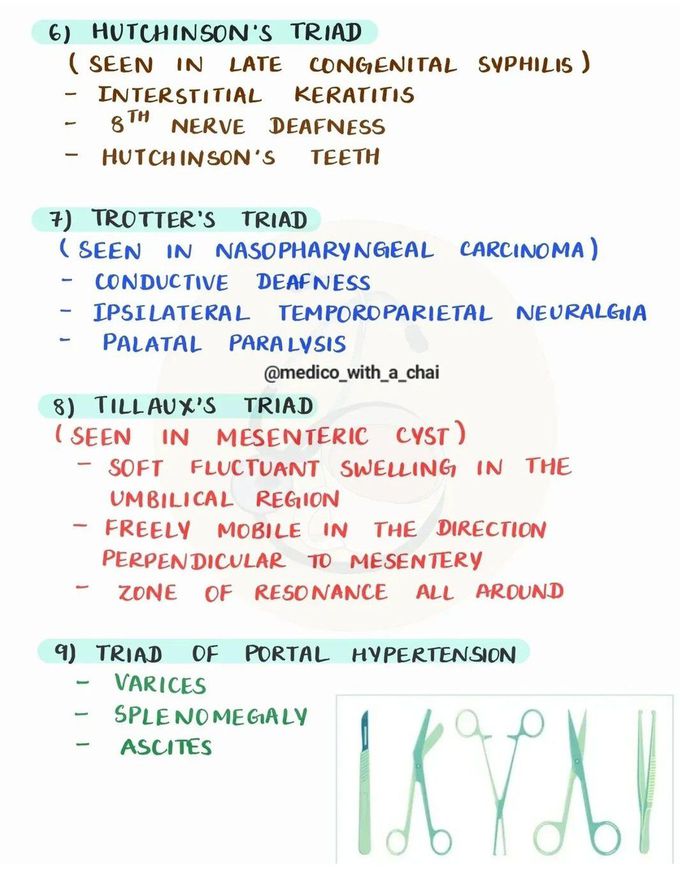 6) HUTCHINSON'S TRIAD
(SEEN IN LATE CONGENITAL SYPHILIS)
- INTERSTITIAL KERATITIS
- 8TH NERVE DEAFNESS
- HUTCHINSON'S TEETH
7) TROTTER'S TRIAD
(SEEN IN NASOPHARYNGEAL CARCINOMA)
- CONDUCTIVE DEAFNESS
- IPSILATERAL TEMPOROPARIETAL NEURALGIA
- PALATAL PARALYSIS
@medico_with_a_chai
8) TILLAUX'S TRIAD
(SEEN IN MESENTERIC CYST)
- SOFT FLUCTUANT SWELLING IN THE
UMBILICAL REGION
- FREELY MOBILE IN THE DIRECTION
PERPENDICULAR TO MESENTERY
- ZONE OF RESONANCE ALL AROUND
9) TRIAD OF PORTAL HYPERTENSION
- VARICES
- SPLENOMEGALY
- ASCITES